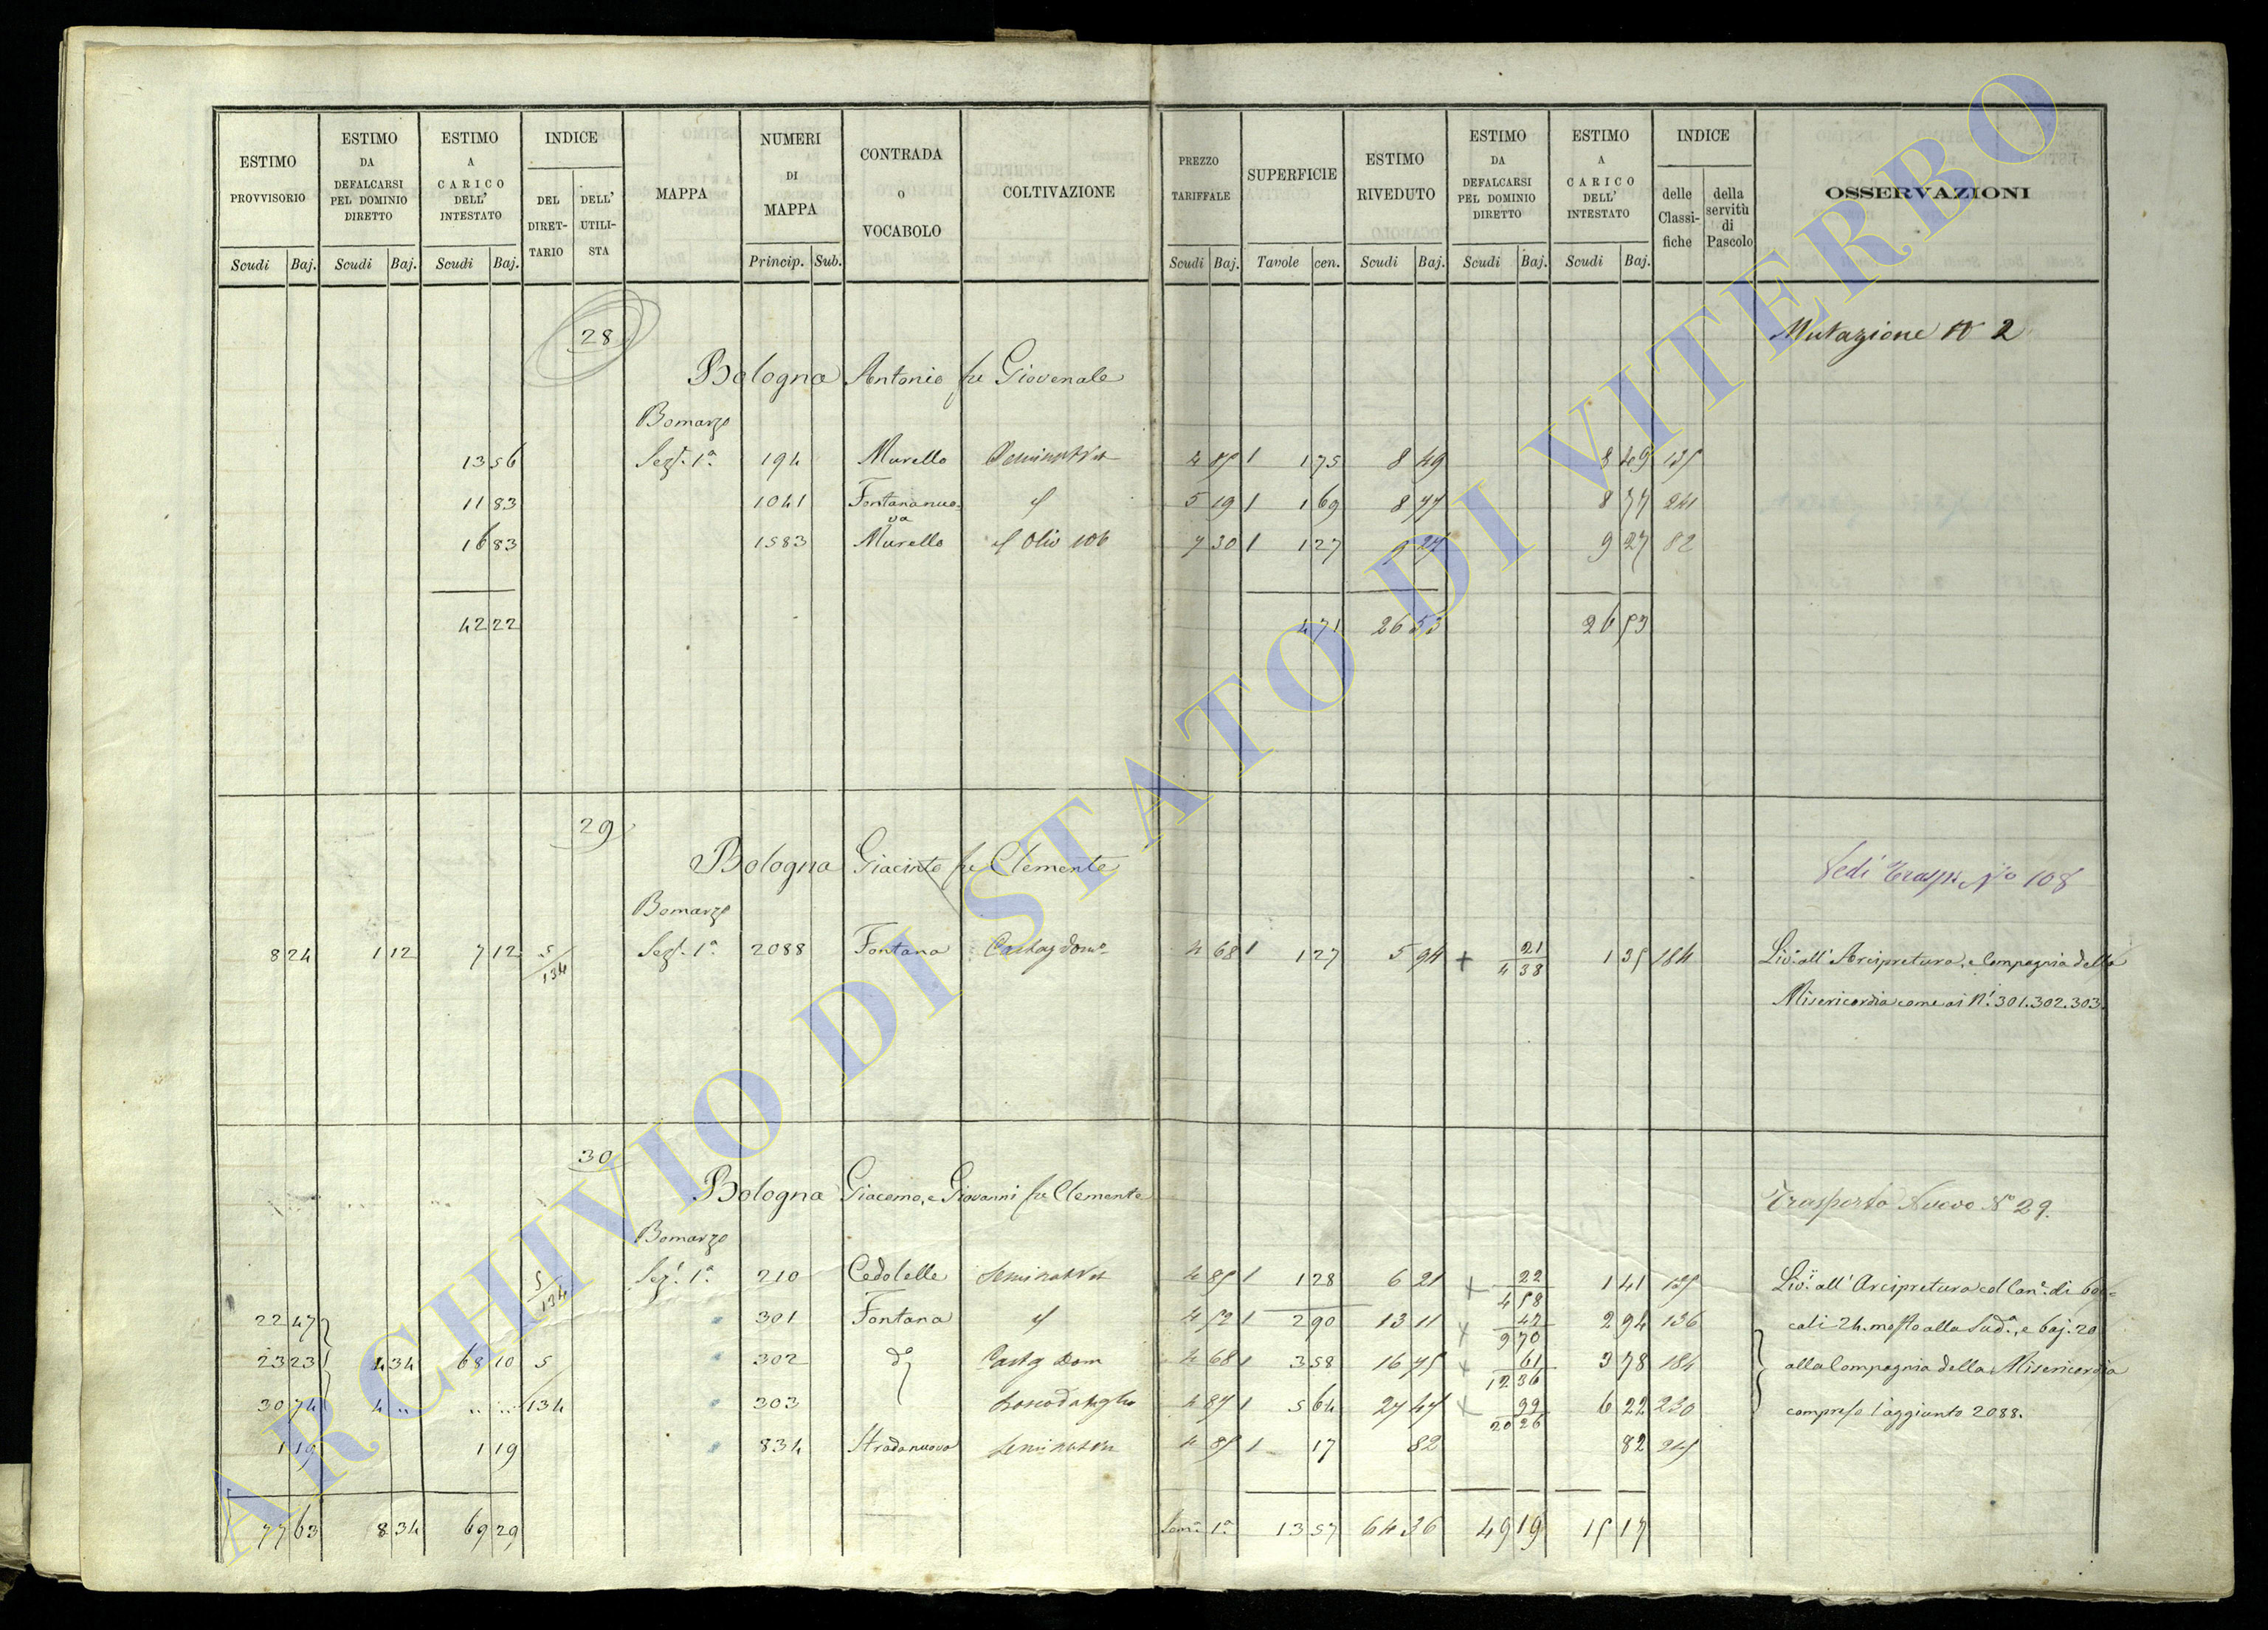 ESTIMO PROVVISORIO | ESTIMO DA DEFALCARSI PEL DOMINIO DIRETTO | ESTIMO A CARICO DELL' INTESTATO | INDICE | MAPPA | NUMERI DI MAPPA | CONTRADA o VOCABOLO | COLTIVAZIONE | PREZZO TARIFFALE | SUPERFICIE | ESTIMO RIVEDUTO | ESTIMO DA DEFALCARSI PEL DOMINIO DIRETTO | ESTIMO A CARICO DELL' INTESTATO | INDICE | OSSERVAZIONI
DEL DIRETTARIO | DELL' UTILISTA | delle Classifiche | della servitù di Pascolo
Scudi | Baj. | Scudi | Baj. | Scudi | Baj. | Princip. | Sub. | Scudi | Baj. | Tavole | cen. | Scudi | Baj. | Scudi | Baj. | Scudi | Baj.
28 Mutazione N 2
Bologna Antonio fu Giovenale
Bomarzo
13 56 Sez. 1a 194 Murello Seminat Vit 4 85 1 1 75 8 49 8 49 135
11 83 1041 Fontananuova 5 19 1 1 69 8 77 8 77 241
16 83 1583 Murello Oliv 106 7 30 1 1 27 9 27 9 27 82
42 22 4 71 26 53 26 53
29
Bologna Giacinto fu Clemente Vedi Trasp. No 108
Bomarzo
8 24 1 12 7 12 5/134 Sez. 1a 2088 Fontana Castag dom 4 68 1 1 27 5 94 + 21 4 38 1 35 184 Liv. all' Arcipretura, e Compagnia della
Misericordia come ai N. 301. 302. 303.
30
Bologna Giacomo, e Giovanni fu Clemente Trasporto Nuovo No 29.
Bomarzo
5/134 Sez. 1a 210 Cedolelle Seminat Vit 4 85 1 1 28 6 21 + 22 4 58 1 41 135 Liv. all' Arcipretura col Can. di boc=
22 47 301 Fontana 4 52 1 2 90 13 11 + 42 9 70 2 94 136 cali 24. mosto alla Sud.a, e baj. 20
23 23 4 34 68 10 5 302 do Castg Dom 4 68 1 3 58 16 75 + 61 12 36 3 78 184 alla Compagnia della Misericordia
30 74 4 .. .. .. 134 303 4 87 1 5 64 27 47 + 99 20 26 6 22 230 compreso l'aggiunto 2088.
1 19 1 19 834 Stradanuova Seminativ 4 85 1 17 82 82 245
77 63 8 34 69 29 Som. 1a 13 57 64 36 49 19 15 17
ARCHIVIO DI STATO DI VITERBO